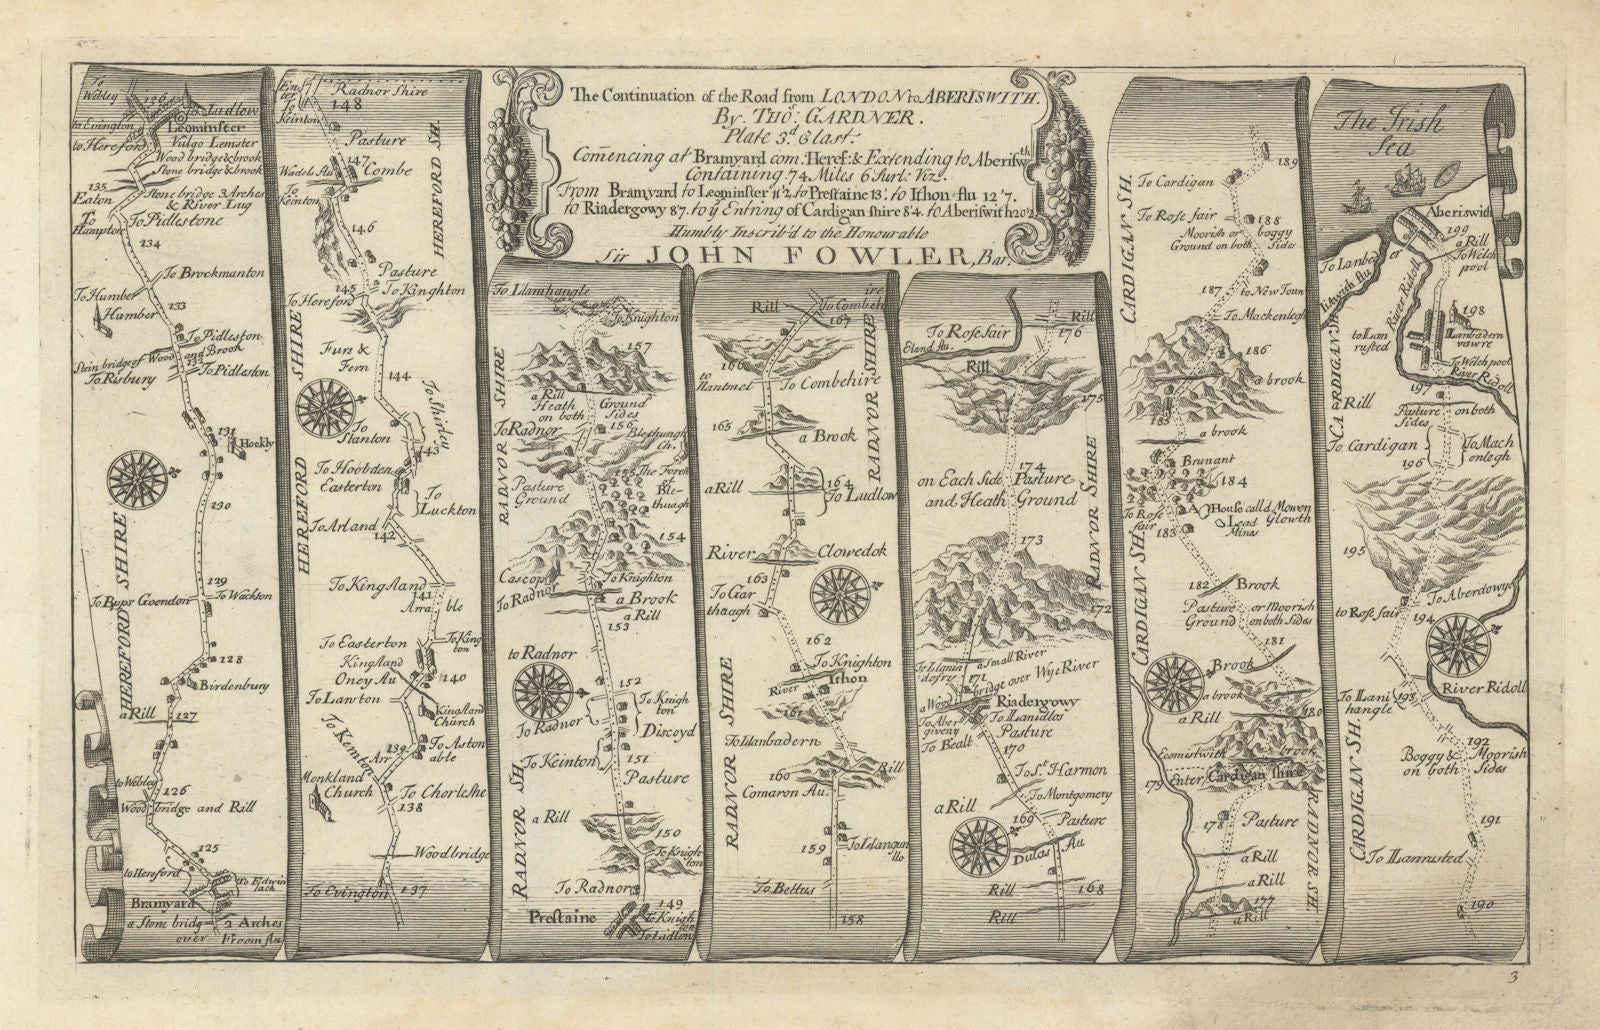 The Continuation of the Road from LONDON to ABERISWITH.
By THO: GARDNER.
Plate 3.d & last.
Comencing at Bramyard com: Heref: & Extending to Aberiswth
Containing 74 Miles 6 Furl: Viz.
From Bramyard to Leominster 11'2. to Prestaine 13'. to Ishon flu 12'7.
to Riadergowy 8'7. to ye Entring of Cardigan shire 8'4. to Aberiswith 20'2
Humbly Inscrib'd to the Honourable
Sir JOHN FOWLER, Bar.
To
Webley
136
Ludlow
to Evington
Leominster
to Hereford
Vulgo Lemster
Wood bridge & brook
Stone bridge & brook
135
Stone bridge 3 Arches
Eaton
& River Lug
To
Hampton
To Pidlestone
134
To Brockmanton
To Humber
133
Humber
To Pidleston
Stein bridge of Wood and Brook
132
To Risbury
To Pidleston
131
Hockly
130
HEREFORD SHIRE
129
To Bpps Goendon
To Wackton
128
Birdenbury
a Rill
127
to Webley
126
Wood bridge and Rill
125
to Hereford
To Edwin
lach
Bramyard
a Stone bridg
2 Arches
over
Froom flu
En
ter
To
Keinton
Radnor Shire
148
Pasture
147
Wadels flu
Combe
To
Keinton
146
HEREFORD SH.
Pasture
145
To Kinghton
To Hereford
Furs &
Fern
144
To Shirley
To
Stanton
143
To Hoobden
Easterton
To
Luckton
To Arland
142
HEREFORD SHIRE
To Kingsland
141
Arra ble
To Easterton
To King
ton
Kingsland
Oney flu
140
To Lawton
Kingsland
Church
To Kemton
139
To Aston
Arr able
Monkland
Church
To Chorleshe
138
Wood bridge
To Evington
137
To Llamhangle
To Knighton
157
RADNOR SHIRE
a Rill
Heath
on both
Ground
Sides
156
To Radnor
Blethuagh
Ch.
155
The Forest
of
Ble-
thuagh
Pasture
Ground
154
Cascop
To Knighton
To Radnor
a Brook
a Rill
153
to Radnor
152
To Knigh
ton
To Radnor
Discoyd
To Keinton
151
Pasture
RADNOR SH.
a Rill
150
To Knigh
ton
To Radnor
149
Prestaine
To Knigh
ton
To Ludlow
Rill
ire
To Combeh
167
166
to
Nantmel
To Combehire
165
a Brook
RADNOR SHIRE
a Rill
164
To Ludlow
River
Clowedok
163
To Gar
thaagh
162
To Knighton
River
Ishon
161
RADNOR SHIRE
To Llanbadern
160
Rill
Comaron flu
159
To Llangun
llo
To Bettus
158
To Rosefair
Rill
176
Eland flu.
Rill
175
on Each Side Pasture
174
and Heath Ground
RADNOR SHIRE
173
172
a Small River
171
bridge over Wye River
a Wood
Riadergowy
To Aber
giveny
To Llanidles
To Bealt
Pasture
170
To St Harmon
To Montgomery
a Rill
169
Pasture
Dulas flu
Rill
168
Rill
189
CARDIGAN SH.
To Cardigan
To Rose fair
188
Moorish or boggy
Ground on both Sides
187
to New Toun
To Mackenlegh
186
a brook
185
a brook
Brunant
184
To Rose
fair
House call'd Mowen
Glowth
Lead
Mine
183
CARDIGAN SH.
182
Brook
Pasture or Moorish
Ground on both Sides
181
Brook
a brook
180
a Rill
Ecomistwith brook
179
Enter Cardigan shire
178
Pasture
RADNOR SH.
a Rill
a Rill
177
a Rill
The Irish
Sea
Aberiswith
199
a Rill
To Welch
pool
To Lanbed er
Ilstwith flu
River Ridoll
198
to Llan
rusted
Llanbadern
vawre
To Welch pool
River Ridoll
197
CARDIGAN SH.
Rill
Pasture on both
Sides
To Cardigan
To Mach
enlegh
196
195
To Aberdowye
to Rose fair
194
River Ridoll
To Llani
hangle
193
192
Boggy & Moorish
on both Sides
CARDIGAN SH.
191
To Llanrusted
190
3